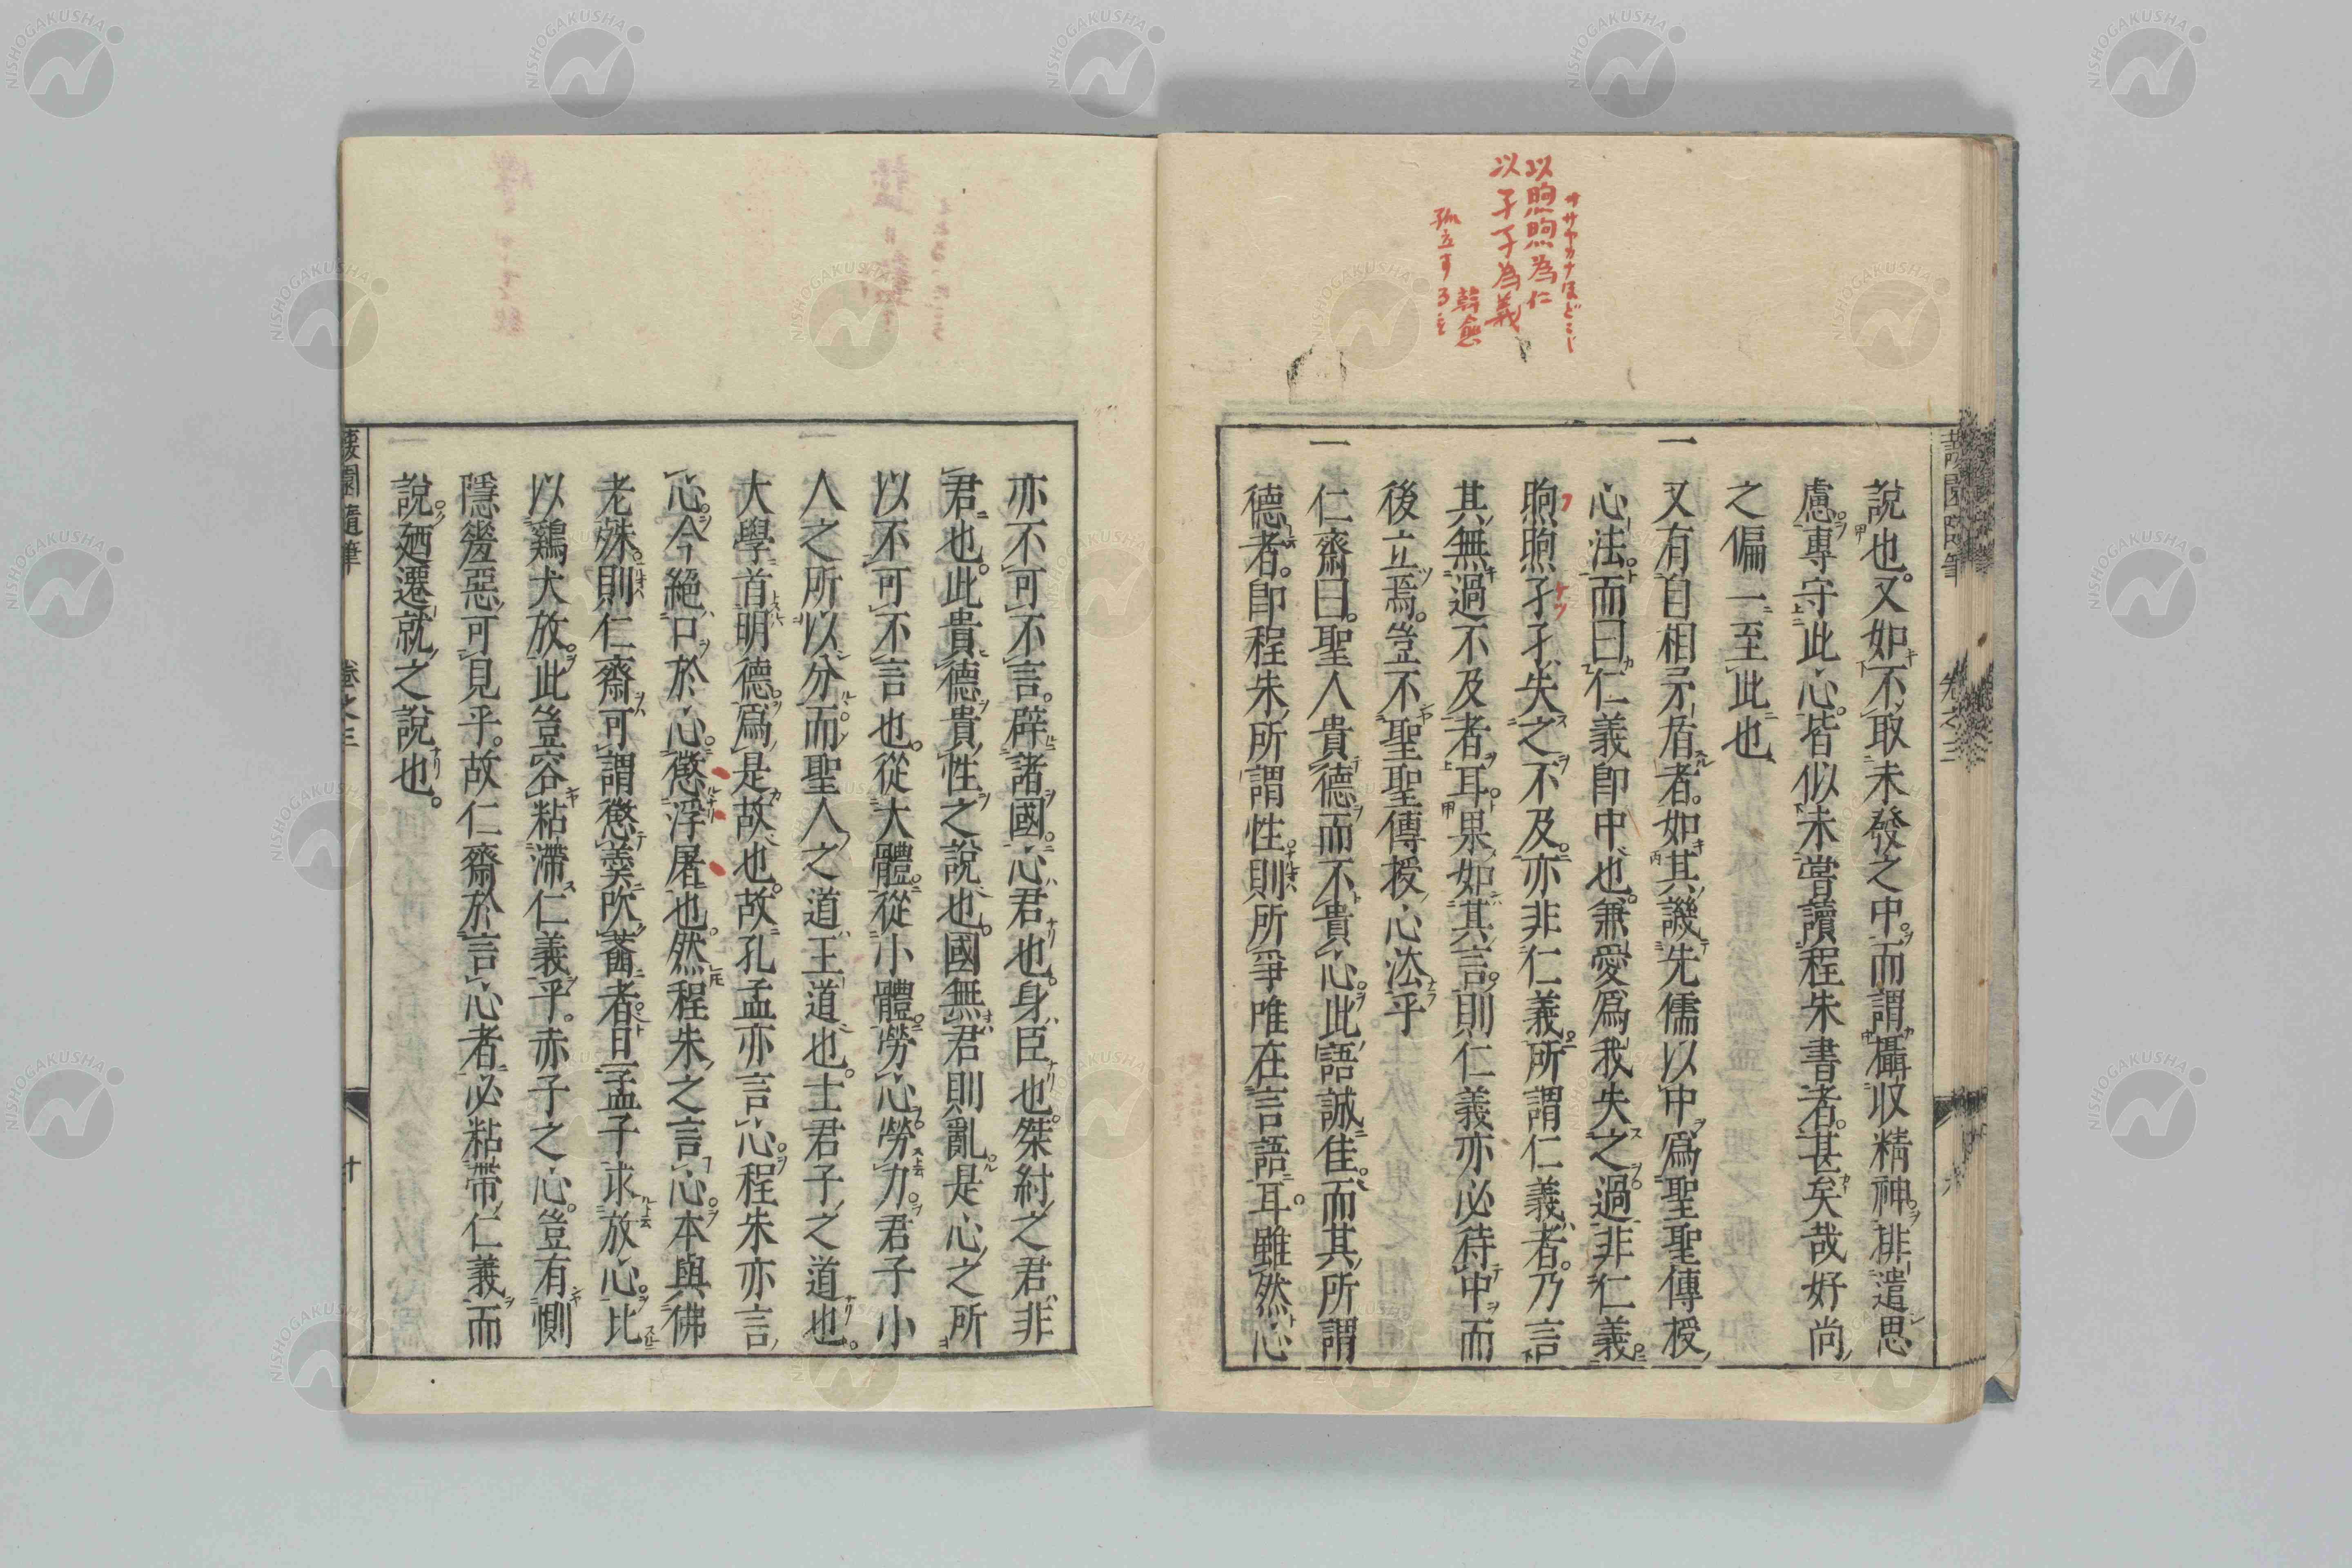 以煦煦為仁
以孑孑為義
韓愈
說也。又如不取未發之中。而謂攝收精神。排遣思
慮。專守此心。皆似未嘗讀程朱書者。甚矣哉好尚
之偏一至此也
一又有自相矛盾者。如其譏先儒以中爲聖聖傳授
心法。而曰仁義卽中也。兼愛爲我失之過非仁義。
煦煦孑孑失之不及。亦非仁義。所謂仁義者。乃言
其無過不及者耳。果如其言。則仁義亦必待中而
後立焉。豈不聖聖傳授心法乎
一仁齋曰。聖人貴德而不貴心。此語誠佳。而其所謂
德者。卽程朱所謂性。則所爭唯在言語耳。雖然心
亦不可不言。辟諸國。心君也。身臣也。桀紂之君非
君也。此貴德貴性之說也。國無君則亂。是心之所
以不可不言也。從大體從小體。勞心勞力。君子小
人之所以分。而聖人之道王道也。士君子之道也。
大學首明德。爲是故也。故孔孟亦言心。程朱亦言
心。今絕口於心。懲浮屠也。然程朱之言心。本與佛
老殊。則仁齋可謂懲羹吹虀者。曰孟子求放心。比
以鷄犬放。此豈容粘滯仁義乎。赤子之心。豈有惻
隱羞惡可見乎。故仁齋於言心者。必粘帶仁義而
說。廼遷就之說也。
蘐園隨筆
卷之三
十